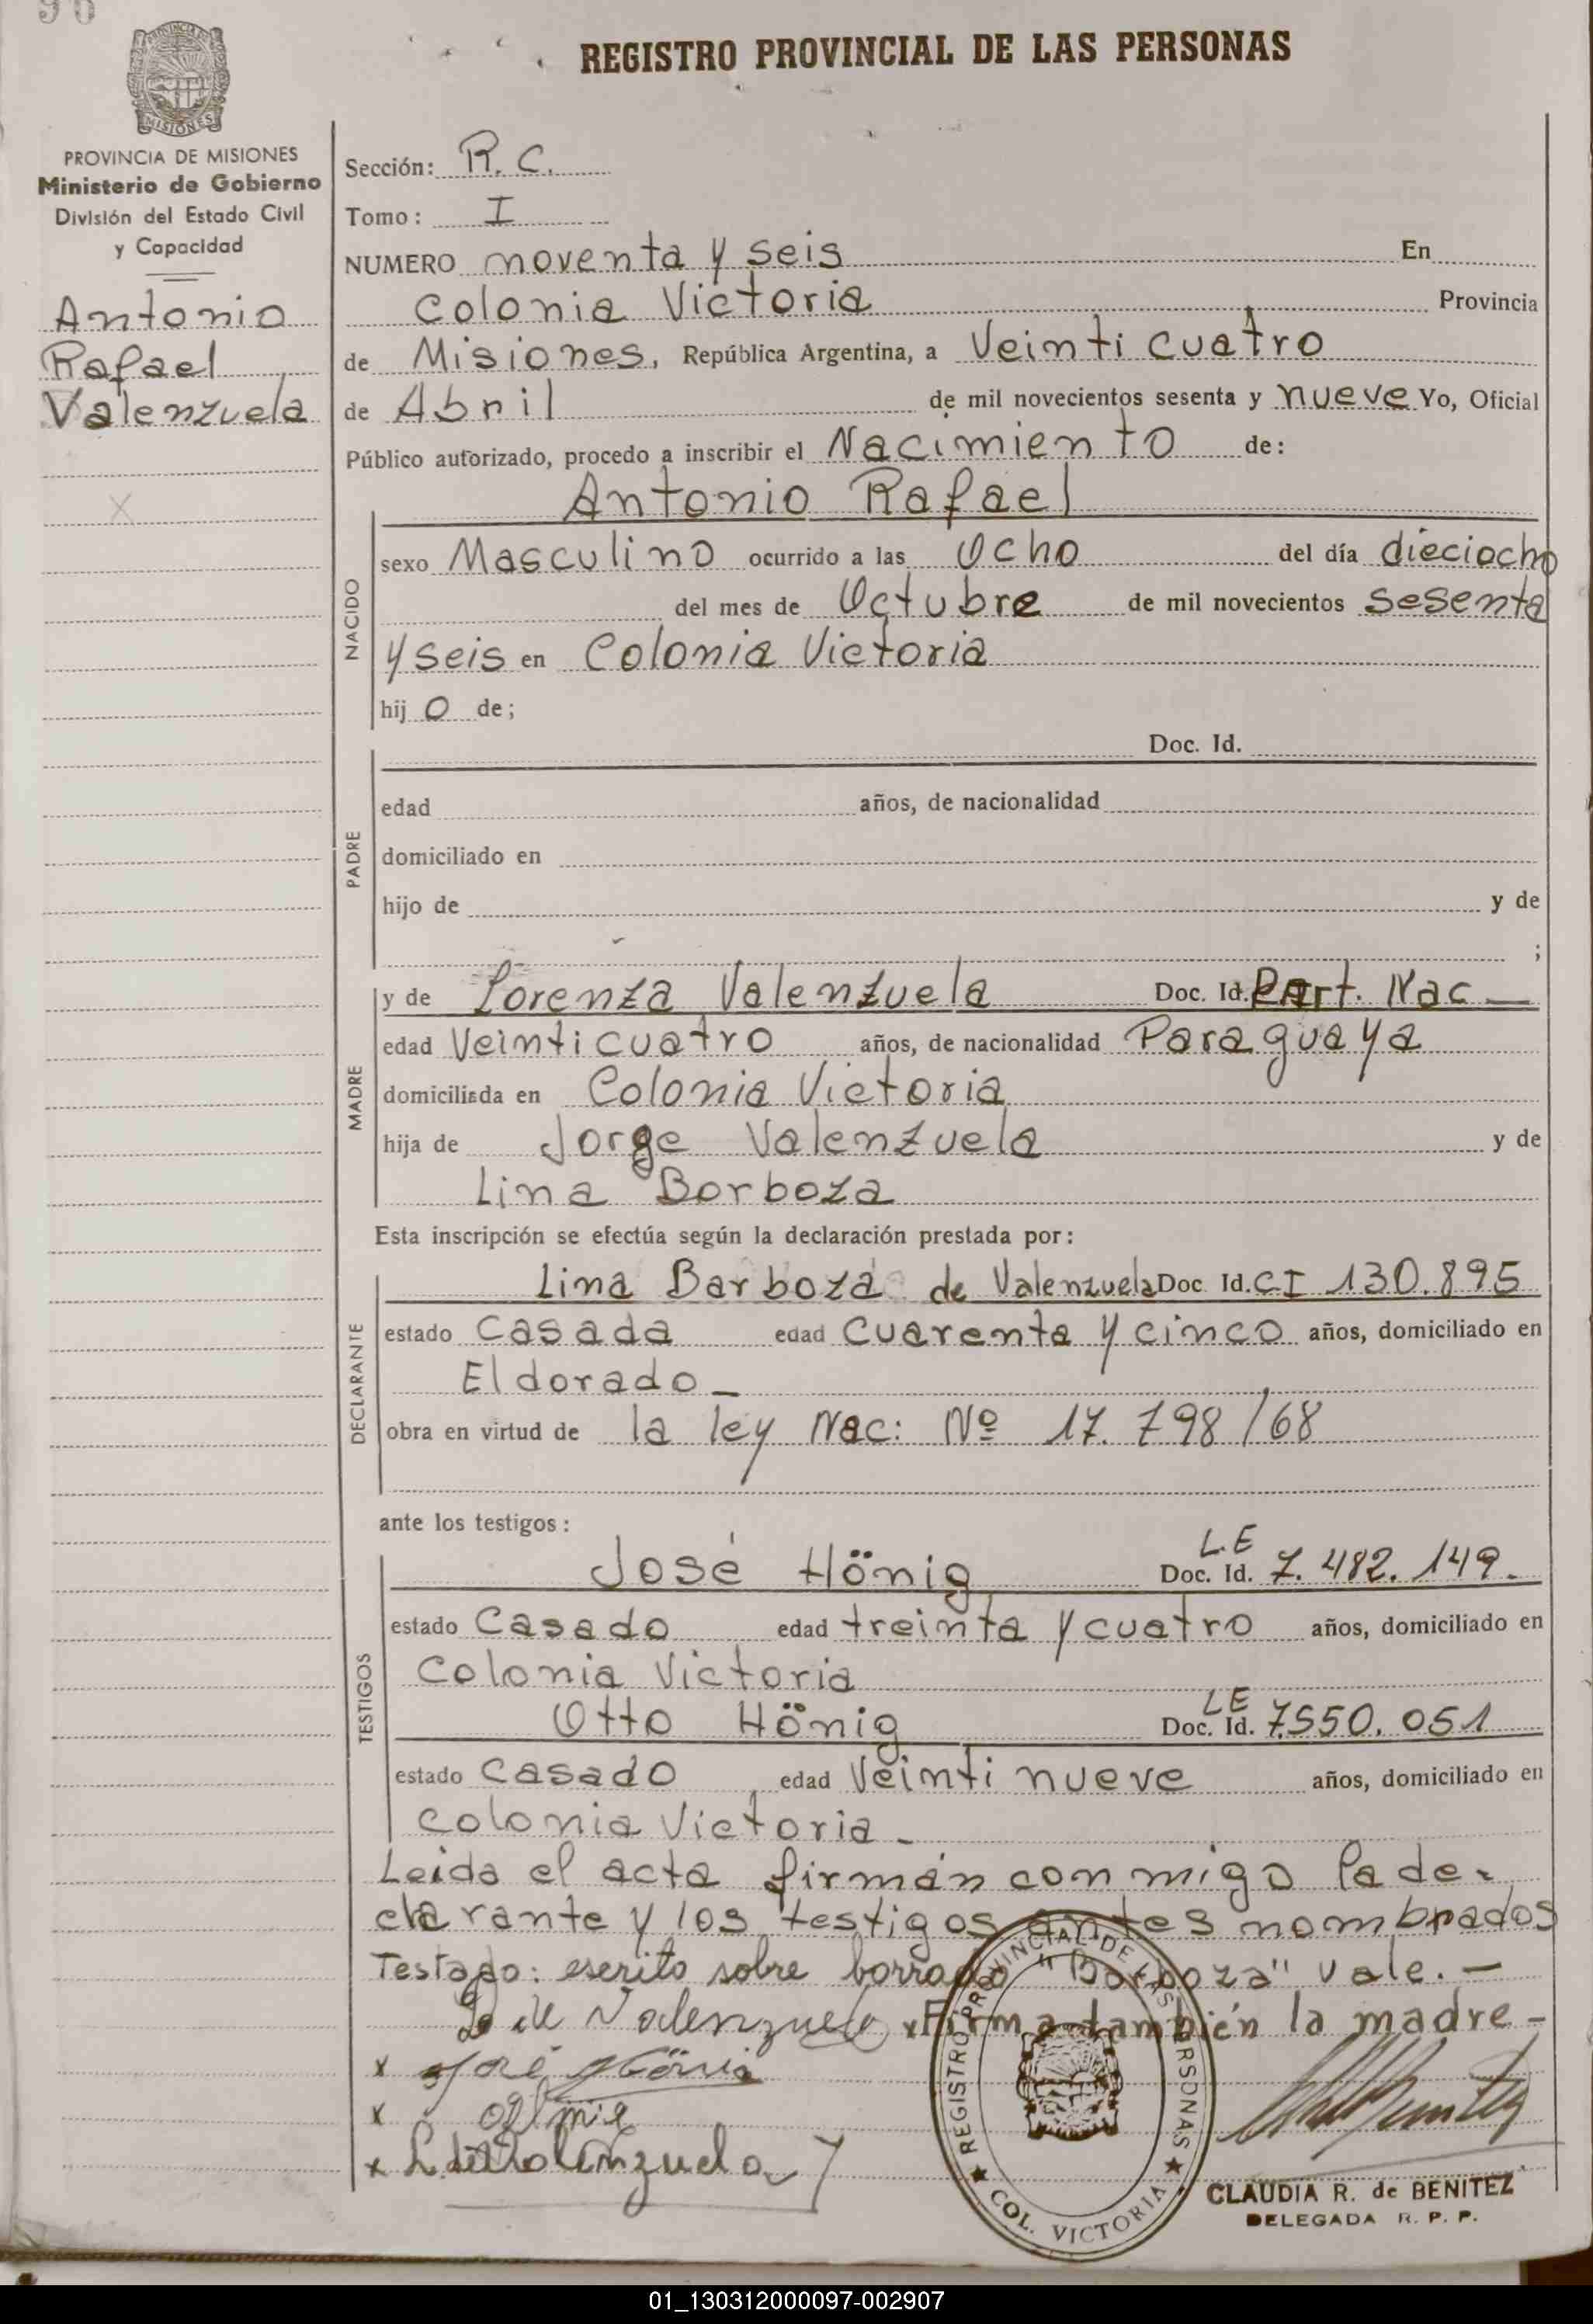 96
REGISTRO PROVINCIAL DE LAS PERSONAS
MISIONES
PROVINCIA DE MISIONES
Ministerio de Gobierno
División del Estado Civil
y Capacidad
Antonio
Rafael
Valenzuela
X
Sección: R. C.
Tomo: I
NUMERO noventa y seis En
Colonia Victoria Provincia
de Misiones, República Argentina, a Veinti cuatro
de Abril de mil novecientos sesenta y nueve Yo, Oficial
Público autorizado, procedo a inscribir el Nacimiento de:
Antonio Rafael
NACIDO
sexo Masculino ocurrido a las Ocho del día dieciocho
del mes de Octubre de mil novecientos sesenta
y seis en Colonia Victoria
hij o de;
PADRE
Doc. Id.
edad años, de nacionalidad
domiciliado en
hijo de y de
;
MADRE
y de Lorenza Valenzuela Doc. Id. Part. Nac —
edad Veinticuatro años, de nacionalidad Paraguaya
domiciliada en Colonia Victoria
hija de Jorge Valenzuela y de
Lina Borboza
Esta inscripción se efectúa según la declaración prestada por:
DECLARANTE
Lina Barboza de Valenzuela Doc. Id. CI 130.895
estado Casada edad Cuarenta y cinco años, domiciliado en
Eldorado —
obra en virtud de la ley Nac: Nº 17.798/68
ante los testigos:
TESTIGOS
José Hönig Doc. Id. L.E 7.482.149.
estado Casado edad treinta y cuatro años, domiciliado en
Colonia Victoria
Otto Hönig Doc. Id. LE 7.550.051
estado Casado edad Veinti nueve años, domiciliado en
Colonia Victoria -
Leida el acta firmán con migo la de-
clarante y los testigos antes nombrados
Testado: escrito sobre borrado "Borboza" vale. —
de Valenzuela x Firma también la madre -
x José Hönig
x
x L de Valenzuela
REGISTRO PROVINCIAL DE LAS PERSONAS
★ COL. VICTORIA ★
CLAUDIA R. de BENITEZ
DELEGADA R. P. P.
01_130312000097-002907